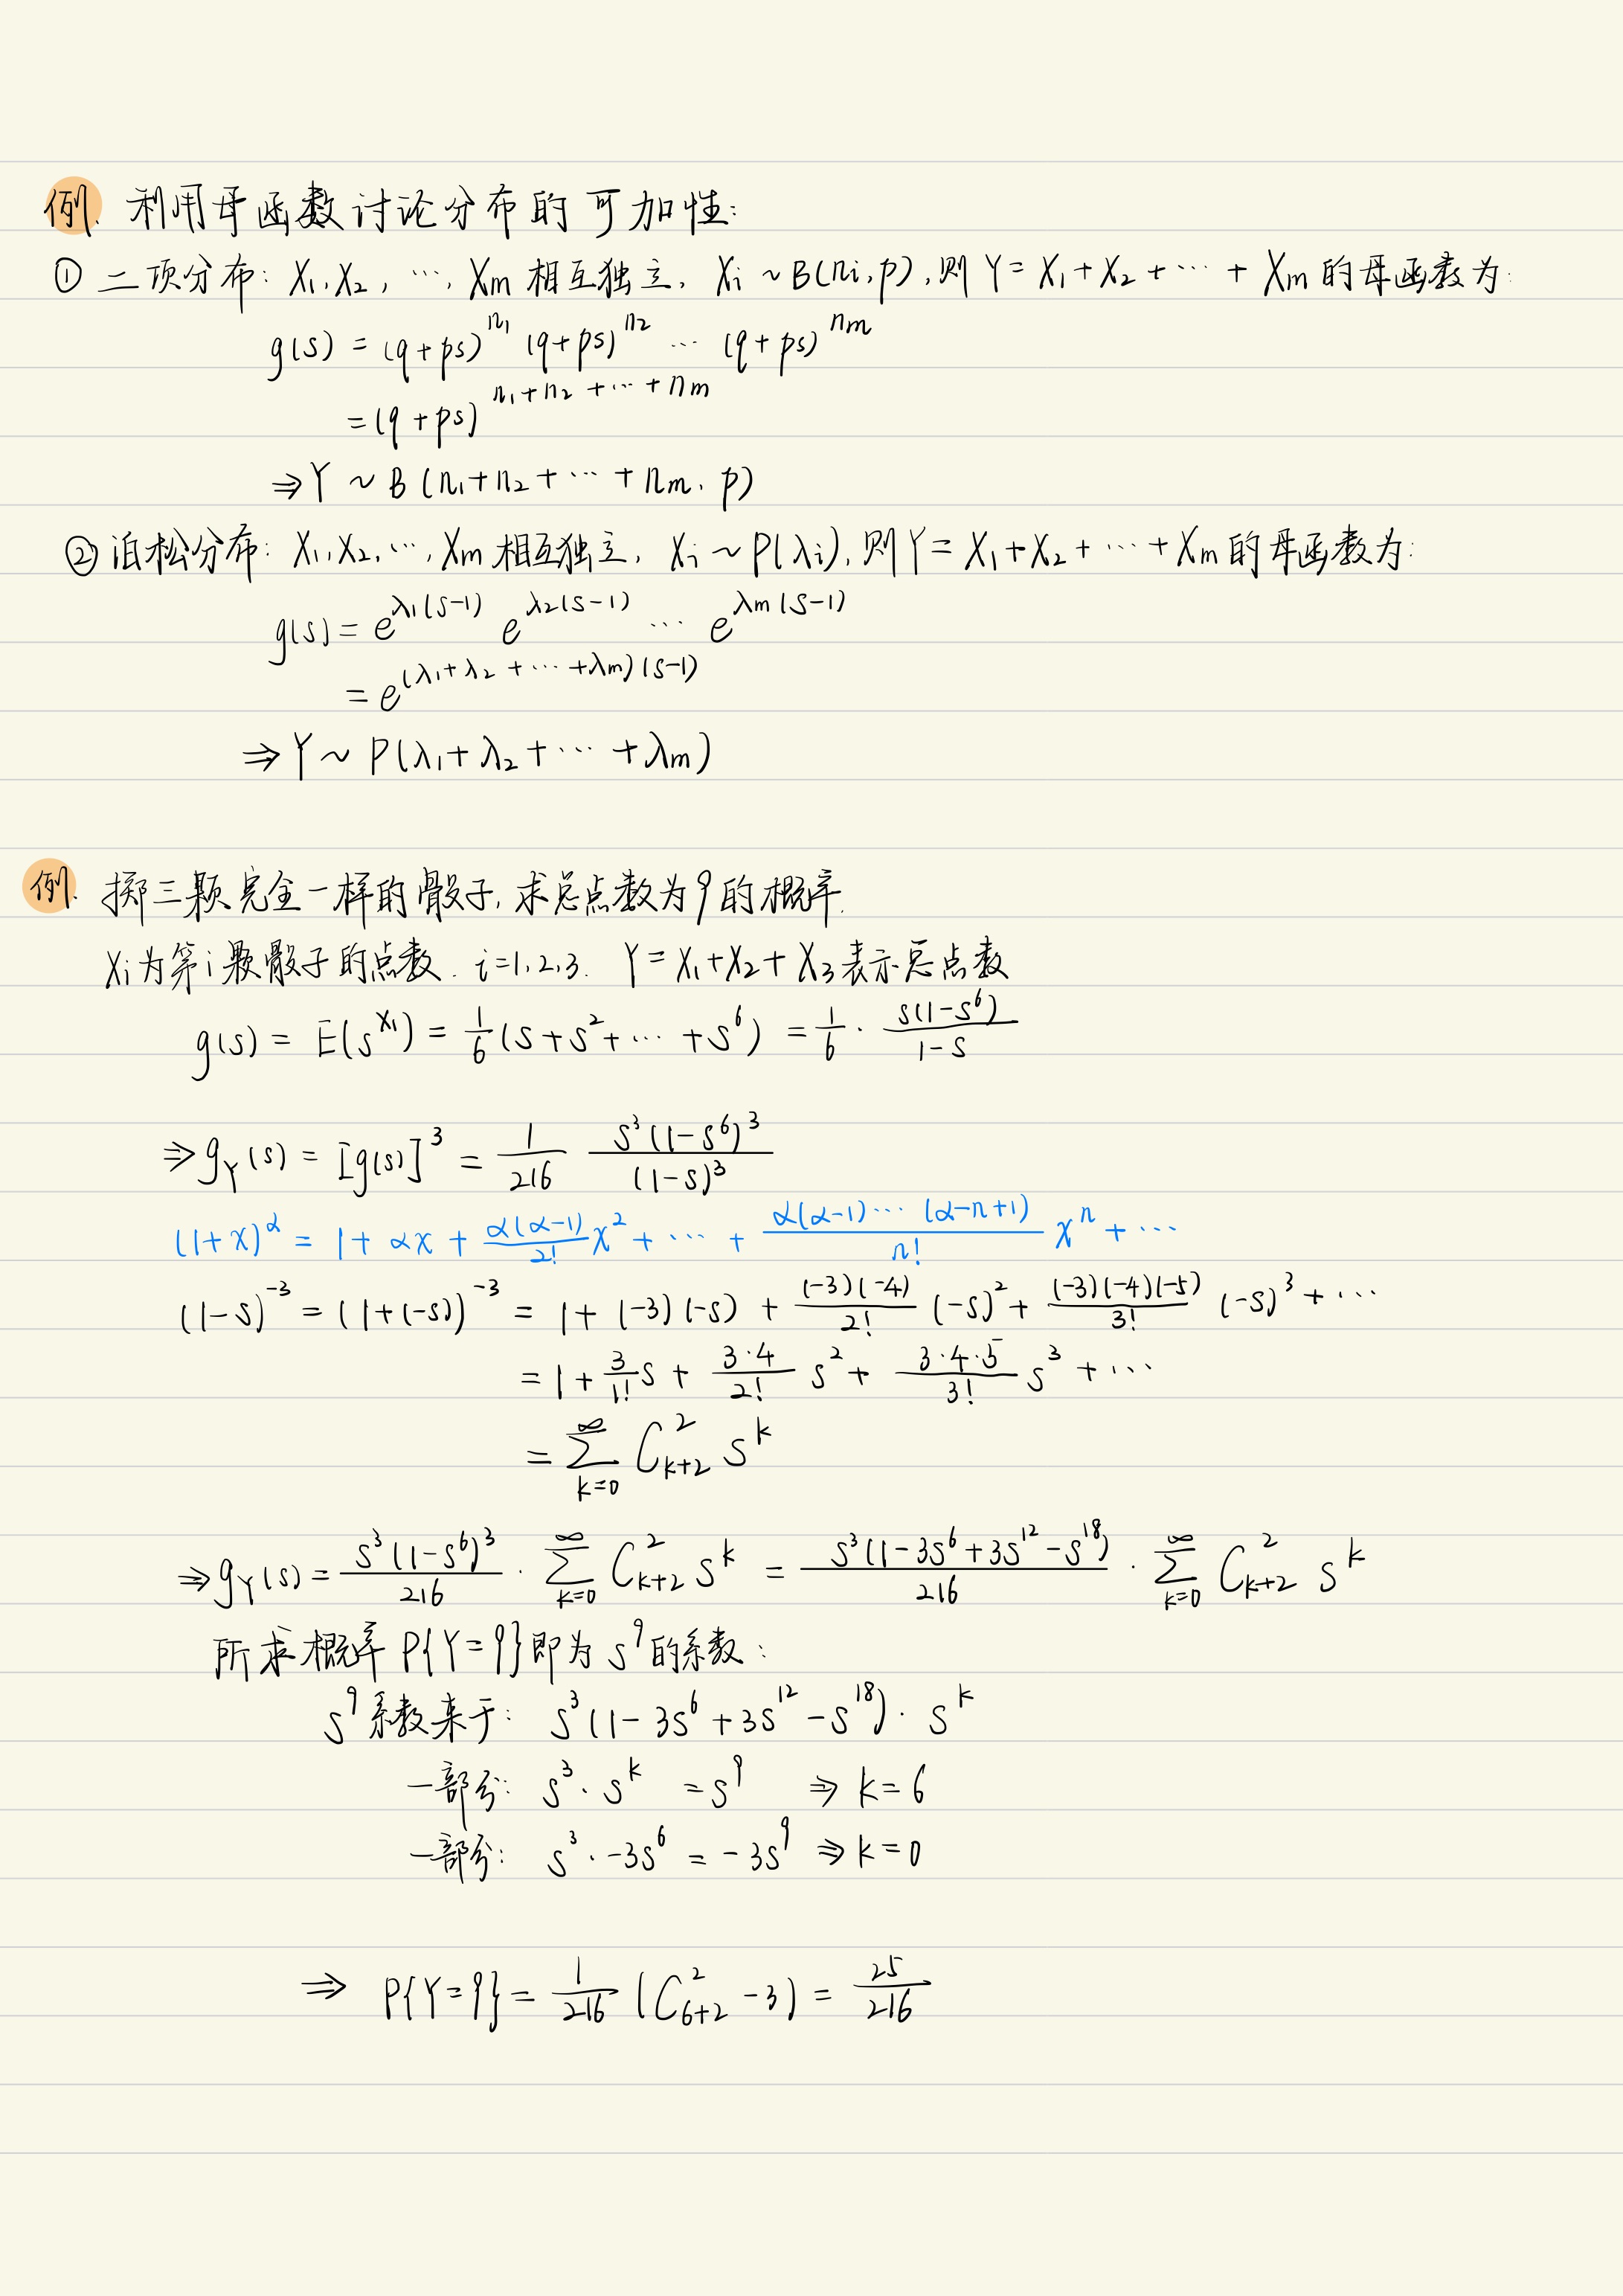 例. 利用母函数讨论分布的可加性:
① 二项分布: X₁,X₂, ⋯, Xm 相互独立, Xi ~ B(ni,p),则 Y = X₁+X₂+⋯+Xm 的母函数为:
g(s) = (q+ps)^{n₁} (q+ps)^{n₂} ⋯ (q+ps)^{nm}
= (q+ps)^{n₁+n₂+⋯+nm}
⇒ Y ~ B(n₁+n₂+⋯+nm, p)
② 泊松分布: X₁,X₂,⋯,Xm 相互独立, Xi ~ P(λi), 则 Y = X₁+X₂+⋯+Xm 的母函数为:
g(s) = e^{λ₁(s-1)} e^{λ₂(s-1)} ⋯ e^{λm(s-1)}
= e^{(λ₁+λ₂+⋯+λm)(s-1)}
⇒ Y ~ P(λ₁+λ₂+⋯+λm)
例. 掷三颗完全一样的骰子, 求总点数为9的概率.
Xi为第i颗骰子的点数. i=1,2,3. Y = X₁+X₂+X₃表示总点数
g(s) = E(s^{X₁}) = \frac{1}{6}(s+s²+⋯+s⁶) = \frac{1}{6} · \frac{s(1-s⁶)}{1-s}
⇒ g_Y(s) = [g(s)]³ = \frac{1}{216} \frac{s³(1-s⁶)³}{(1-s)³}
(1+x)^α = 1+αx+\frac{α(α-1)}{2!}x²+⋯+\frac{α(α-1)⋯(α-n+1)}{n!}xⁿ+⋯
(1-s)^{-3} = (1+(-s))^{-3} = 1+(-3)(-s)+\frac{(-3)(-4)}{2!}(-s)²+\frac{(-3)(-4)(-5)}{3!}(-s)³+⋯
= 1+\frac{3}{1!}s+\frac{3·4}{2!}s²+\frac{3·4·5}{3!}s³+⋯
= \sum_{k=0}^{∞} C_{k+2}^{2} s^k
⇒ g_Y(s) = \frac{s³(1-s⁶)³}{216} · \sum_{k=0}^{∞} C_{k+2}^{2} s^k = \frac{s³(1-3s⁶+3s^{12}-s^{18})}{216} · \sum_{k=0}^{∞} C_{k+2}^{2} s^k
所求概率 P{Y=9}即为 s⁹的系数:
s⁹系数来于: s³(1-3s⁶+3s^{12}-s^{18})· s^k
一部分: s³·s^k = s⁹ ⇒ k=6
一部分: s³·-3s⁶ = -3s⁹ ⇒ k=0
⇒ P{Y=9} = \frac{1}{216}(C_{6+2}^{2}-3) = \frac{25}{216}